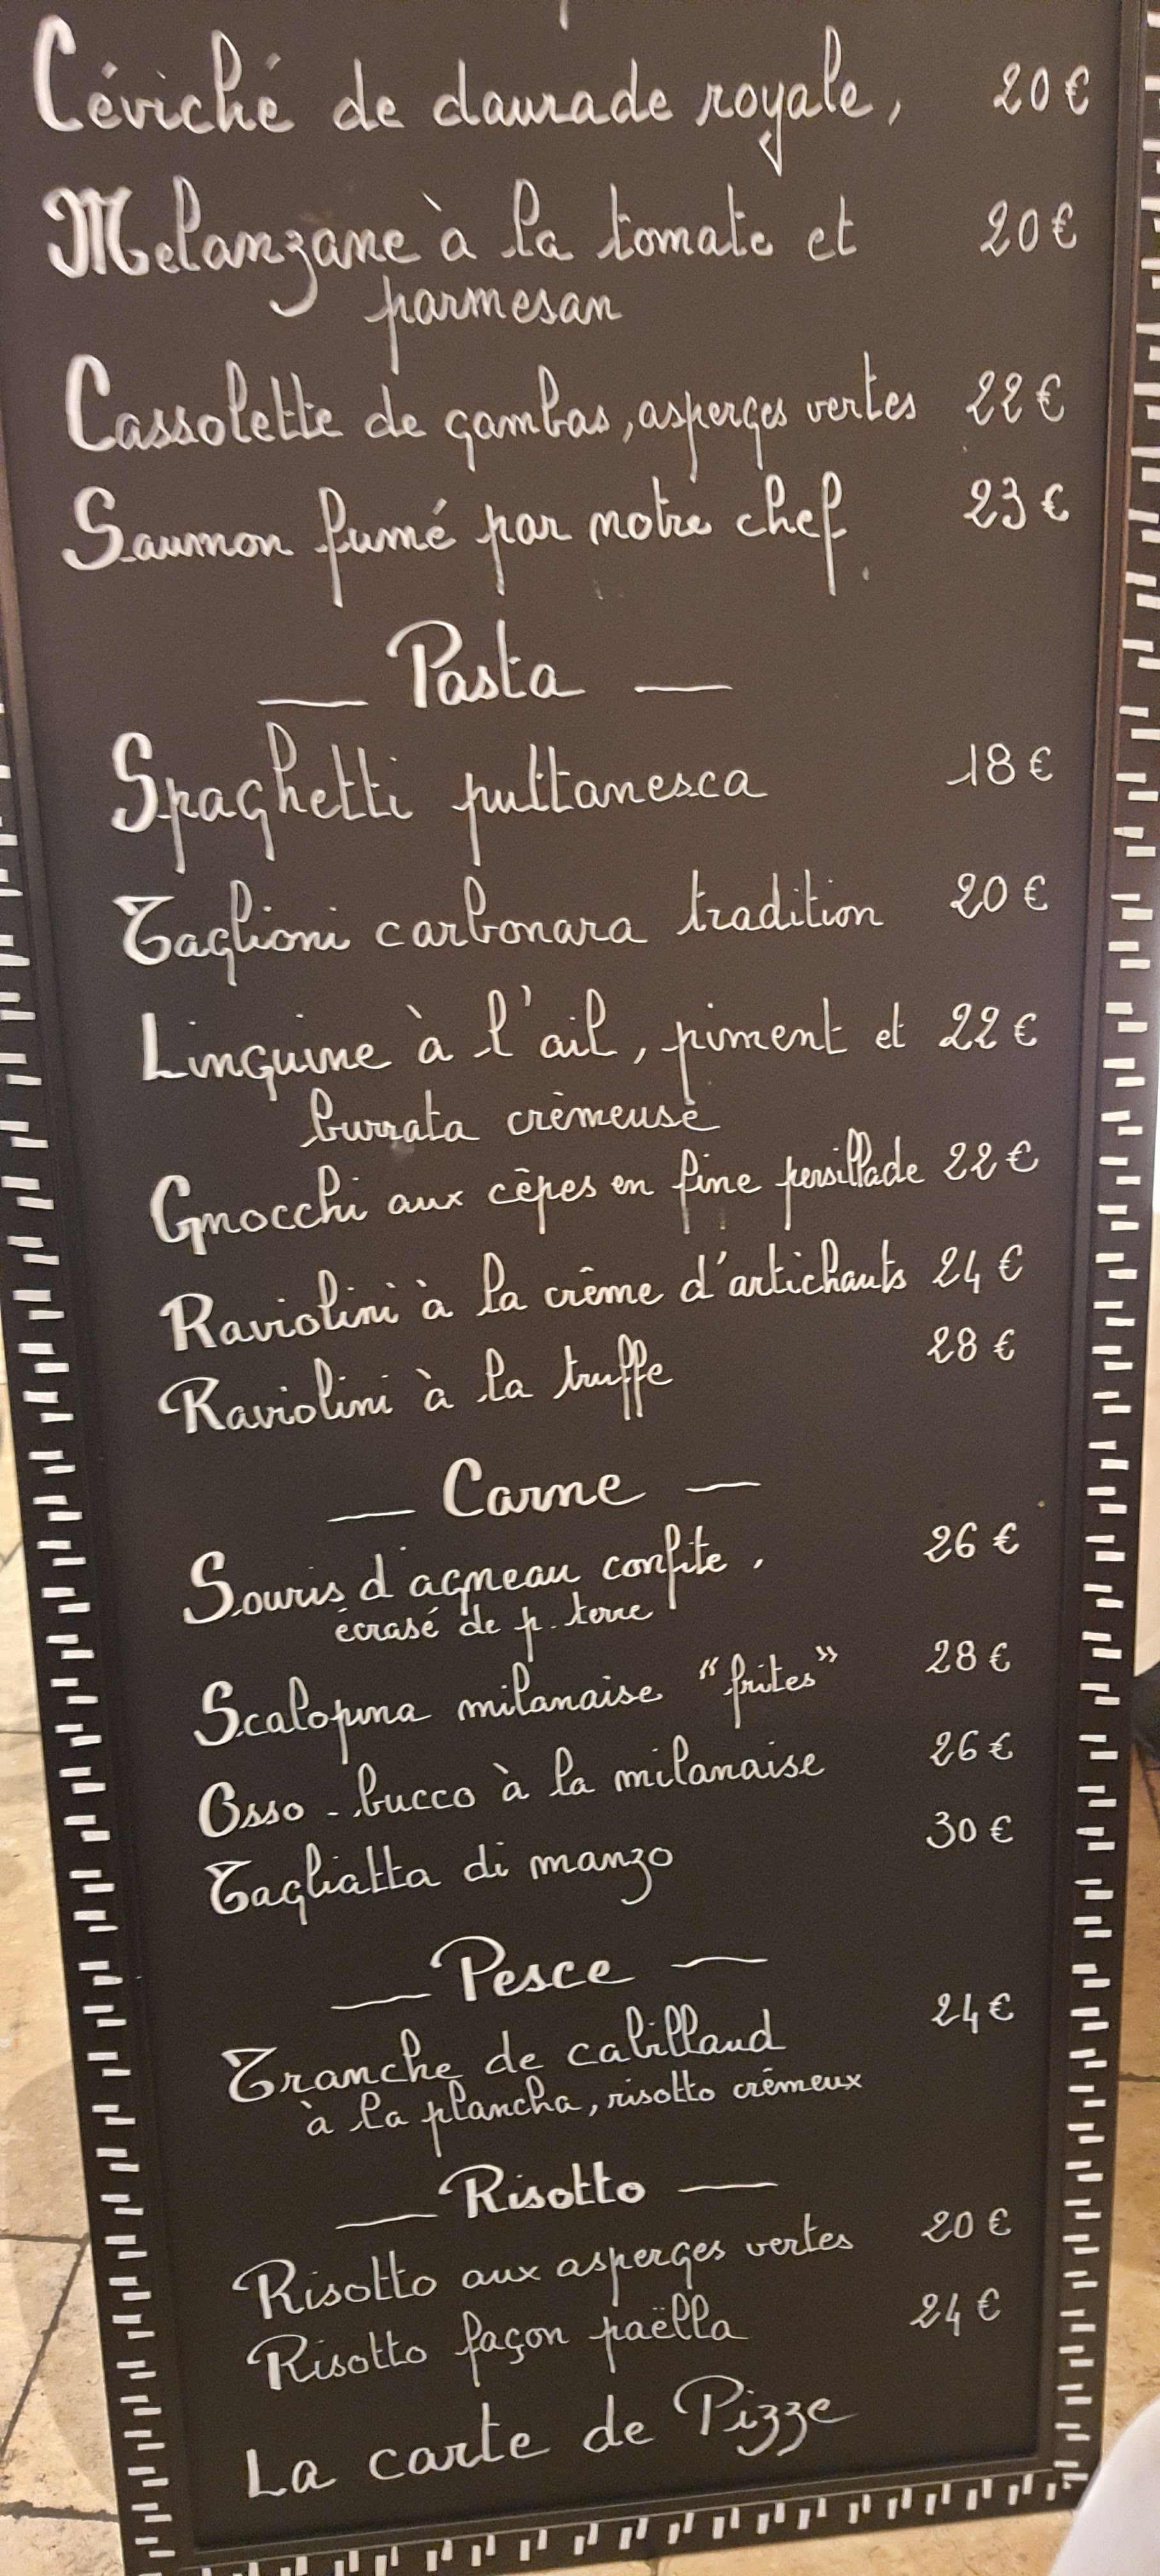 Céviché de daurade royale, 20€
Melanzane à la tomate et 20€
parmesan
Cassolette de gambas, asperges vertes 22€
Saumon fumé par notre chef. 23€
— Pasta —
Spaghetti puttanesca 18€
Taglioni carbonara tradition 20€
Linguine à l'ail, piment et 22€
burrata crèmeuse
Gnocchi aux cèpes en fine persillade 22€
Raviolini à la crème d'artichauts 24€
Raviolini à la truffe 28€
— Carne —
Souris d'agneau confite, 26€
écrasé de p. terre
Scalopina milanaise "frites" 28€
Osso-bucco à la milanaise 26€
Tagliatta di manzo 30€
— Pesce —
Tranche de cabillaud 24€
à la plancha, risotto crèmeux
— Risotto —
Risotto aux asperges vertes 20€
Risotto façon paëlla 24€
La carte de Pizze